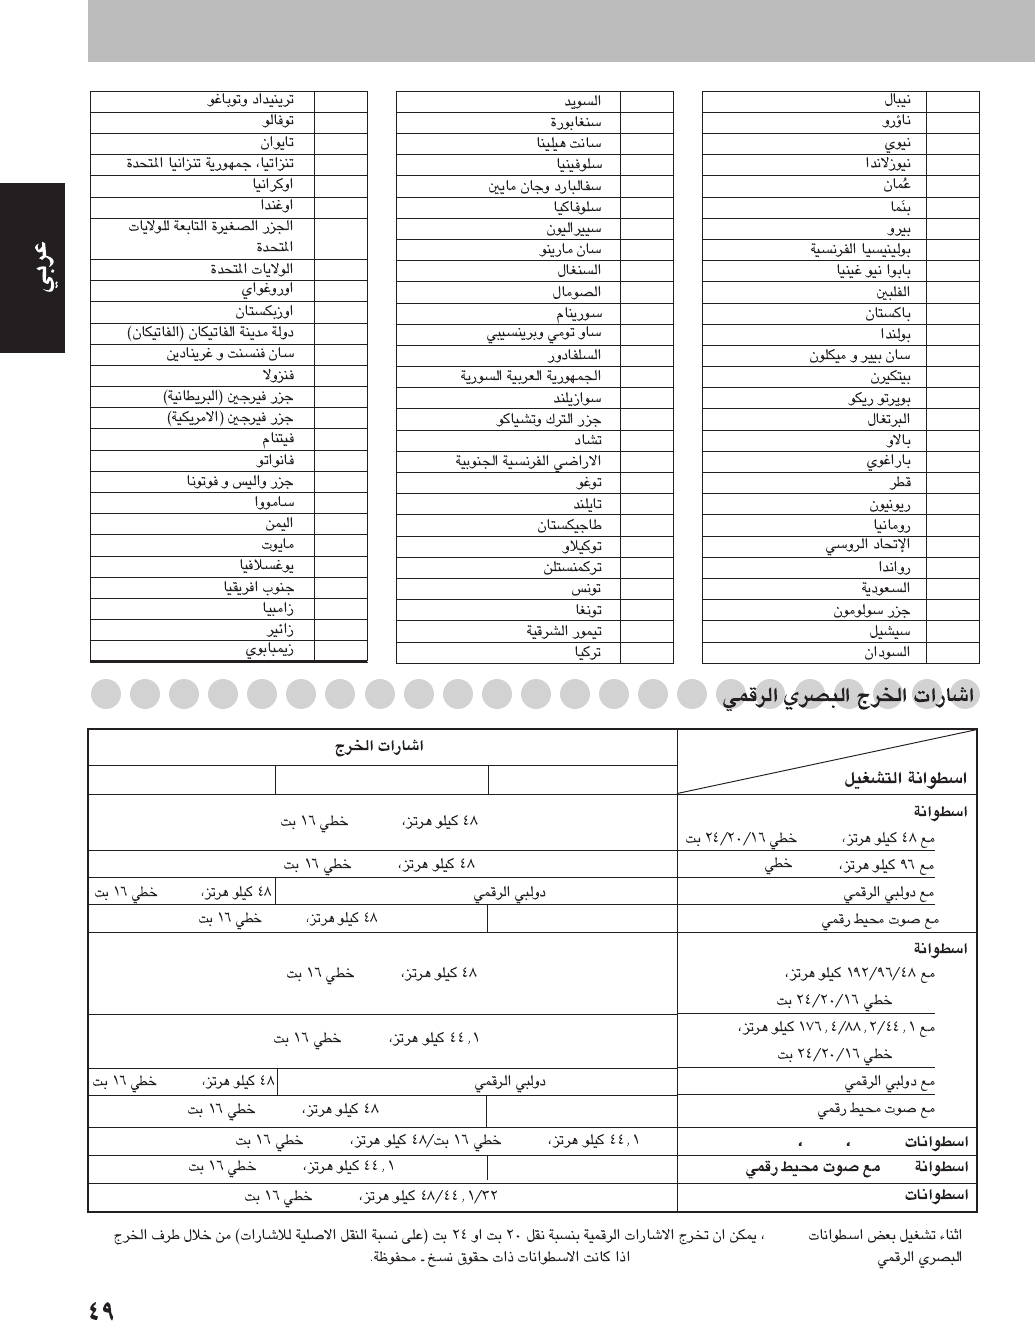 عربي
نيبال
ناؤرو
نيوي
نيوزلاندا
عُمان
بنَما
بيرو
بولينيسيا الفرنسية
بابوا نيو غينيا
الفلبين
باكستان
بولندا
سان بيير و ميكلون
بيتكيرن
بويرتو ريكو
البرتغال
بالاو
باراغوي
قطر
ريونيون
رومانيا
الإتحاد الروسي
رواندا
السعودية
جزر سولومون
سيشيل
السودان
السويد
سنغابورة
سانت هيلينا
سلوفينيا
سفالبارد وجان مايين
سلوفاكيا
سييراليون
سان مارينو
السنغال
الصومال
سورينام
ساو تومي وبرينسيبي
السلفادور
الجمهورية العربية السورية
سوازيلند
جزر الترك وتشياكو
تشاد
الاراضي الفرنسية الجنوبية
توغو
تايلند
طاجيكستان
توكيلاو
تركمنستلن
تونس
تونغا
تيمور الشرقية
تركيا
ترينيداد وتوباغو
توفالو
تايوان
تنزاتيا، جمهورية تنزانيا المتحدة
اوكرانيا
اوغندا
الجزر الصغيرة التابعة للولايات
المتحدة
الولايات المتحدة
اوروغواي
اوزبكستان
دولة مدينة الفاتيكان (الفاتيكان)
سان فنسنت و غرينادين
فنزولا
جزر فيرجين (البريطانية)
جزر فيرجين (الامريكية)
فيتنام
فانواتو
جزر واليس و فوتونا
سامووا
اليمن
مايوت
يوغسلافيا
جنوب افريقيا
زامبيا
زائير
زيمبابوي
اشارات الخرج البصري الرقمي
اشارات الخرج
اسطوانة التشغيل
اسطوانة
مع ٤٨ كيلو هرتز، خطي ٢٤/٢٠/١٦ بت
٤٨ كيلو هرتز، خطي ١٦ بت
مع ٩٦ كيلو هرتز، خطي
٤٨ كيلو هرتز، خطي ١٦ بت
مع دولبي الرقمي
دولبي الرقمي
٤٨ كيلو هرتز، خطي ١٦ بت
مع صوت محيط رقمي
٤٨ كيلو هرتز، خطي ١٦ بت
اسطوانة
مع ١٩٢/٩٦/٤٨ كيلو هرتز،
خطي ٢٤/٢٠/١٦ بت
٤٨ كيلو هرتز، خطي ١٦ بت
مع ١٧٦,٤/٨٨,٢/٤٤,١ كيلو هرتز،
خطي ٢٤/٢٠/١٦ بت
٤٤,١ كيلو هرتز، خطي ١٦ بت
مع دولبي الرقمي
دولبي الرقمي
٤٨ كيلو هرتز، خطي ١٦ بت
مع صوت محيط رقمي
٤٨ كيلو هرتز، خطي ١٦ بت
اسطوانات ، ،
٤٤,١ كيلو هرتز، خطي ١٦ بت/٤٨ كيلو هرتز، خطي ١٦ بت
اسطوانة مع صوت محيط رقمي
٤٤,١ كيلو هرتز، خطي ١٦ بت
اسطوانات
٤٨/٤٤,١/٣٢ كيلو هرتز، خطي ١٦ بت
اثناء تشغيل بعض اسطوانات ، يمكن ان تخرج الاشارات الرقمية بنسبة نقل ٢٠ بت او ٢٤ بت (على نسبة النقل الاصلية للاشارات) من خلال طرف الخرج
البصري الرقمي اذا كانت الاسطوانات ذات حقوق نسخ - محفوظة.
٤٩